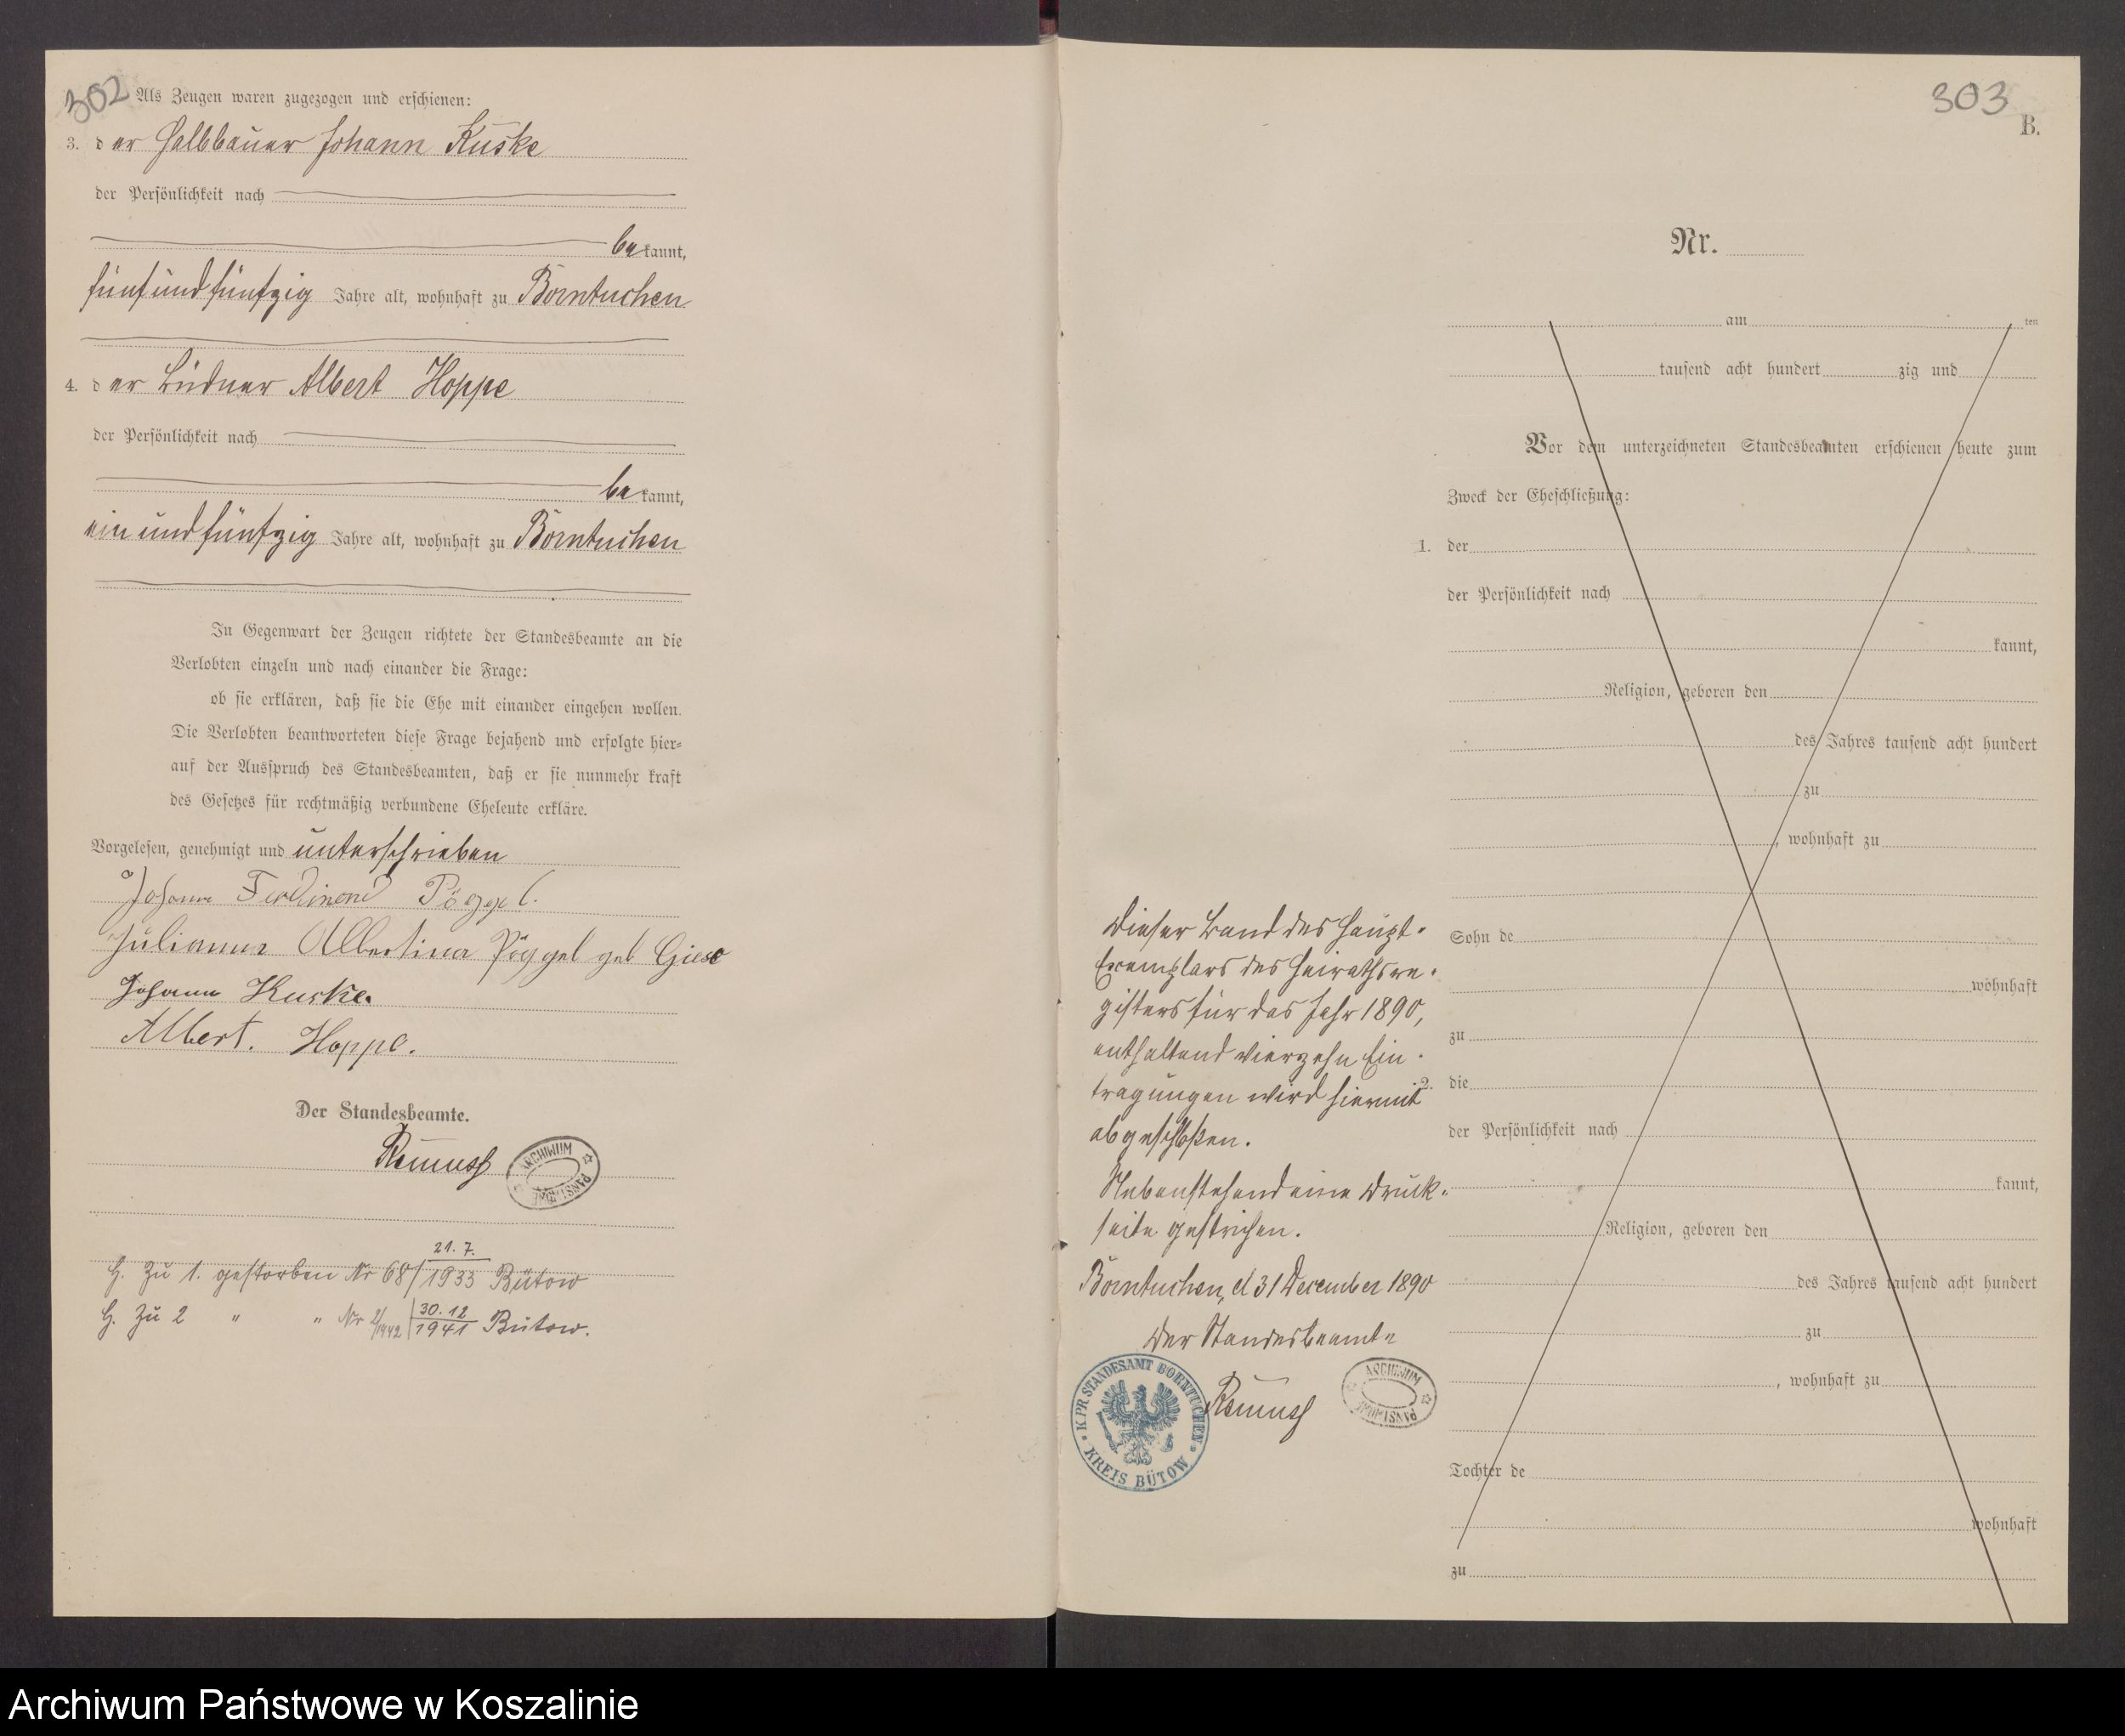 302
Als Zeugen waren zugezogen und erschienen:
3. der Halbbauer Johann Kuske
der Persönlichkeit nach
bekannt,
fünf und fünfzig Jahre alt, wohnhaft zu Borntuchen
4. der Büdner Albert Hoppe
der Persönlichkeit nach
bekannt,
ein und fünfzig Jahre alt, wohnhaft zu Borntuchen
In Gegenwart der Zeugen richtete der Standesbeamte an die
Verlobten einzeln und nach einander die Frage:
ob sie erklären, daß sie die Ehe mit einander eingehen wollen.
Die Verlobten beantworteten diese Frage bejahend und erfolgte hier=
auf der Ausspruch des Standesbeamten, daß er sie nunmehr kraft
des Gesetzes für rechtmäßig verbundene Eheleute erkläre.
Vorgelesen, genehmigt und unterschrieben
Johann Ferdinand Pöggel.
Julianna Albertina Pöggel geb Giese
Johann Kuske.
Albert. Hoppe.
Der Standesbeamte.
ARCHIWUM PAŃSTWOWE
G. Zu 1. gestorben Nr 68/ 21. 7. 1933 Bütow
G. Zu 2 " " Nr 2/1942 30. 12 1941 Bütow.
303
B.
Nr.
am ten
tausend acht hundert zig und
Vor dem unterzeichneten Standesbeamten erschienen heute zum
Zweck der Eheschließung:
1. der
der Persönlichkeit nach
kannt,
Religion, geboren den
des Jahres tausend acht hundert
zu
, wohnhaft zu
Sohn de
wohnhaft
zu
2. die
der Persönlichkeit nach
kannt,
Religion, geboren den
des Jahres tausend acht hundert
zu
, wohnhaft zu
Tochter de
wohnhaft
zu
Dieser Band des Haupt-
Exemplars des Heirathsre-
gisters für das Jahr 1890,
enthaltend vierzehn Ein-
tragungen wird hiermit
abgeschloßen.
Nebenstehend eine Druck-
seite gestrichen.
Borntuchen, d 31 December 1890
Der Standesbeamte
K. PR. STANDESAMT BORNTUCHEN
KREIS BÜTOW
ARCHIWUM PAŃSTWOWE
Archiwum Państwowe w Koszalinie